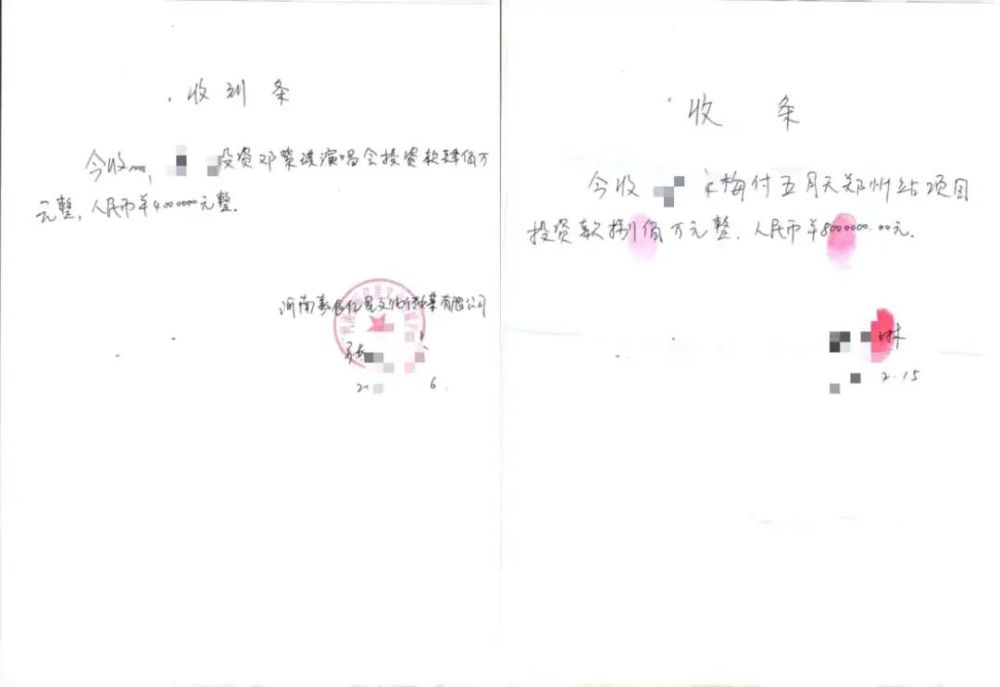 收到条
今收 投资邓紫棋演唱会投资款肆佰万
元整,人民币¥4000000元整.
河南 文化传媒有限公司
张
20 6.
收 条
今收 梅付五月天郑州站项目
投资款捌佰万元整.人民币¥8000000.00元.
琳
2.15